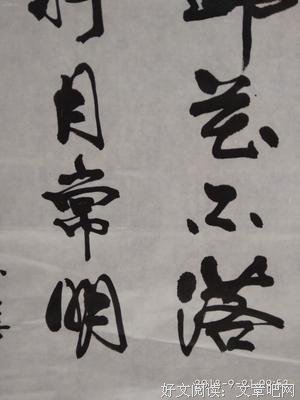 花不落
月常明
好文阅读：文章吧网